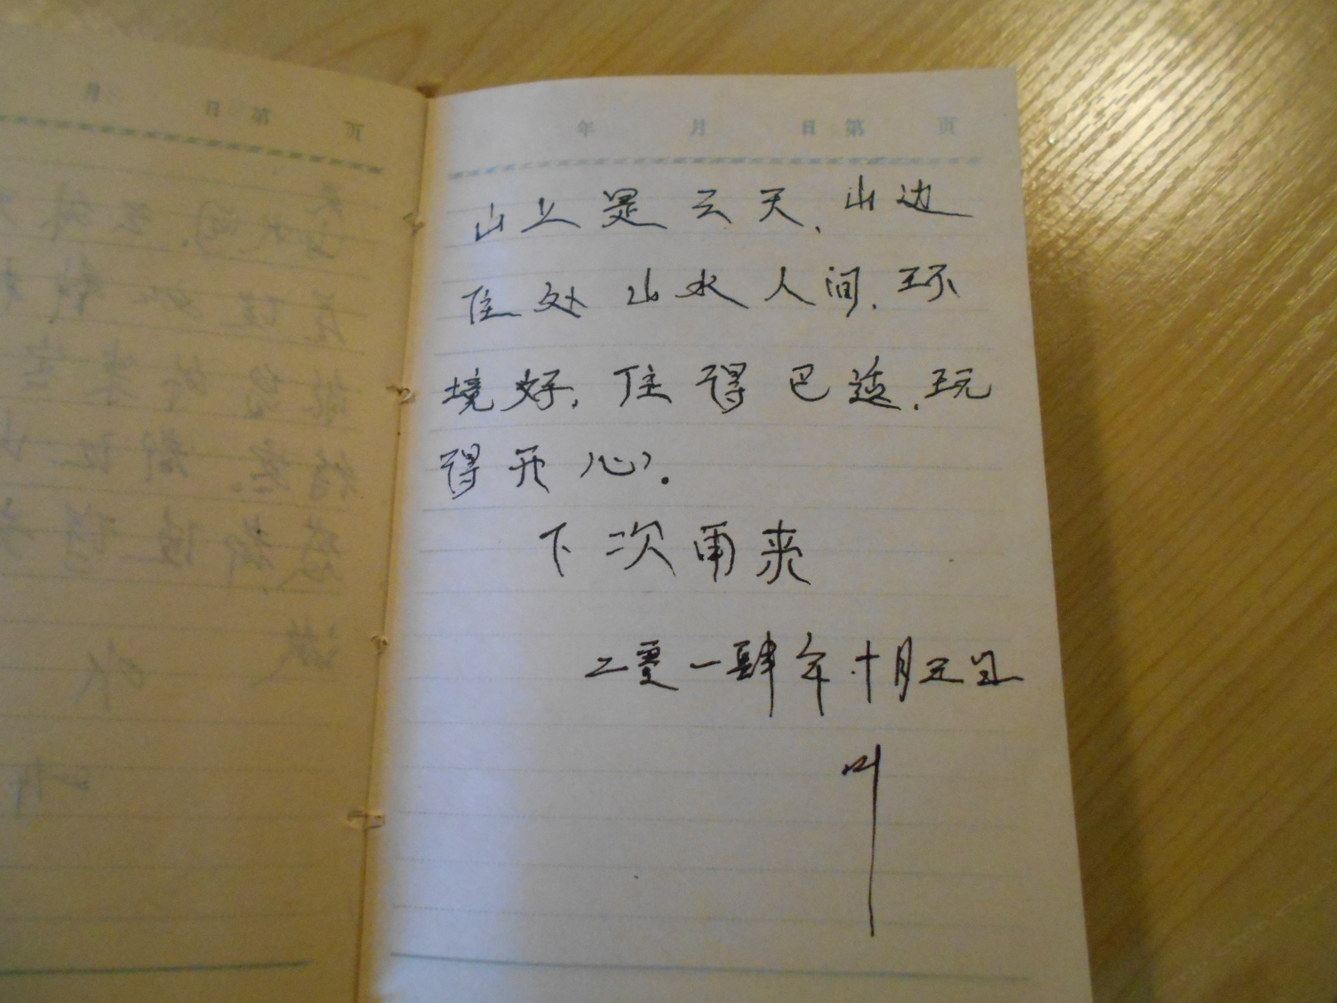 月 日 第 页
年 月 日 第 页
山上是云天、山边
住处山水人间、环
境好、住得巴适、玩
得开心。
下次再来
二零一肆年十月五日
叶